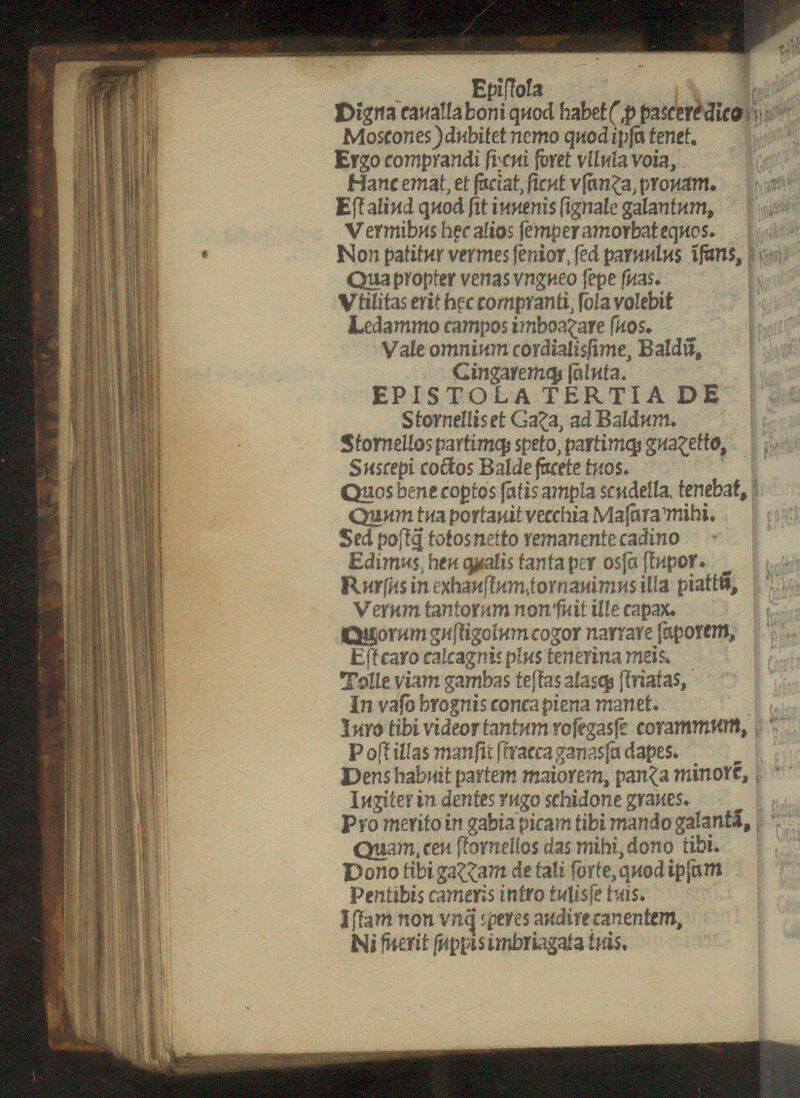 Epiſtola
Digna cauallaboni quod habet (ꝓ pascere dico
Moscones) dubitet nemo quod ipſa tenet.
Ergo comprandi ſicui foret vllula voia,
Hanc emat, et faciat, ſicut vſanza, prouam.
Eſt aliud quod ſit iuuenis ſignale galantum,
Vermibus hęc alios ſemper amorbat equos.
Non patitur vermes ſenior, ſed paruulus īfans,
Quapropter venas vngueo ſepe ſuas.
Vtilitas erit hęc compranti, ſola volebit
Ledammo campos imboazare ſuos.
Vale omnium cordialisſime, Baldū,
Cingaremqꝫ ſaluta.
EPISTOLA TERTIA DE
Stornellis et Gaza, ad Baldum.
Stornellos partimqꝫ speto, partimqꝫ guazetto,
Suscepi coctos Balde facete tuos.
Quos bene coptos ſatis ampla scudella, tenebat,
Quum tua portauit vecchia Maſara mihi.
Sed poſtq̃ totos netto remanente cadino
Edimus, heu qualis tanta per osſa ſtupor.
Rurſus in exhauſtum, tornauimus illa piattū,
Verum tantorum non fuit ille capax.
Quorum guſtigolum cogor narrare ſaporem,
Eſt caro calcagnis plus tenerina meis.
Tolle viam gambas teſtas alasqꝫ ſtriatas,
In vaſo brognis conca piena manet.
Iuro tibi videor tantum roſegasſe corammum,
Poſt illas manſit ſtracca ganasſa dapes.
Dens habuit partem maiorem, panza minorē,
Iugiter in dentes rugo schidone graues.
Pro merito in gabia picam tibi mando galantā,
Quam, ceu ſtornellos das mihi, dono tibi.
Dono tibi gazzam de tali ſorte, quod ipſam
Pentibis cameris intro tulisſe tuis.
Iſtam non vnq̃ speres audire canentem,
Ni fuerit ſuppis imbriagata tuis.